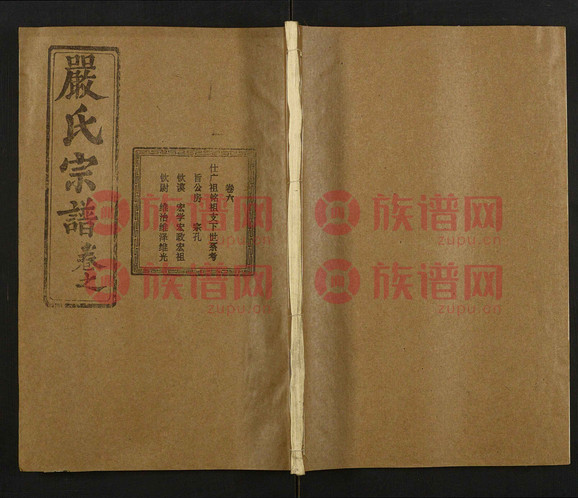 嚴氏宗譜卷之
卷六
仕广祖铭祖支下世系考
旨公房 宗孔
钦漠 宏学宏政宏祖
钦尉 维治维泽维光
族谱网 族谱网
zupu.cn zupu.cn
族谱网 族谱网
zupu.cn zupu.cn